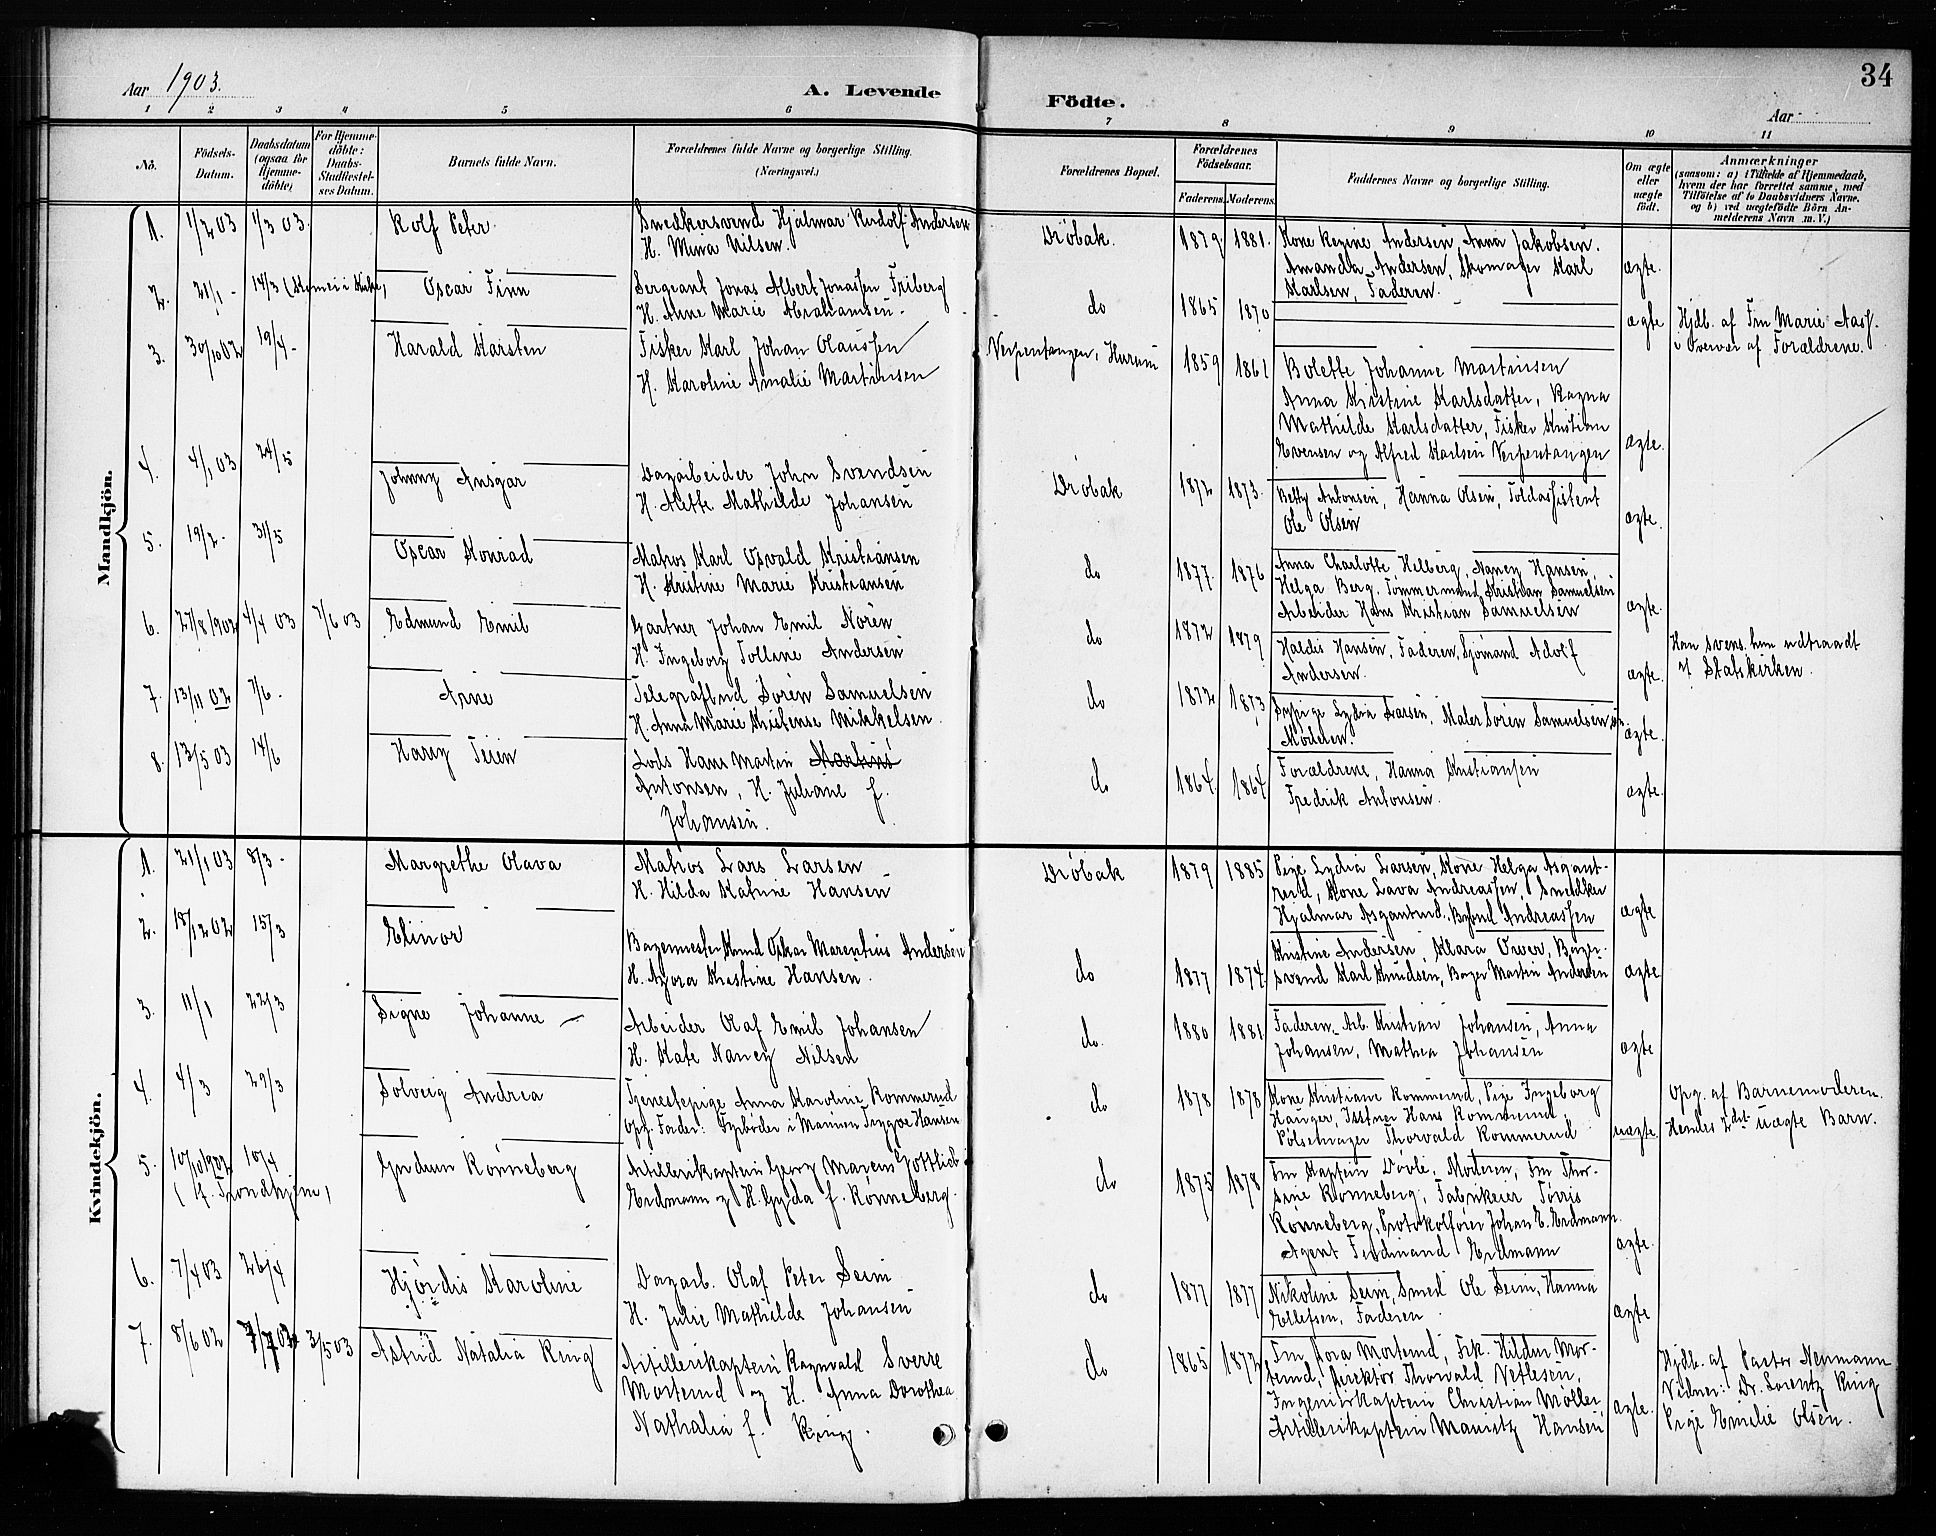 Aar 1903.
A. Levende Födte.
Aar
34
1 2 3 4 5 6 7 8 9 10 11
No.
Födsels-Datum.
Daabsdatum (ogsaa for Hjemmedöbte)
For Hjemmedöbte: Daabs-Stadfæstelses Datum.
Barnets fulde Navn.
Forældrenes fulde Navne og borgerlige Stilling. (Næringsvei.)
Forældrenes Bopæl.
Forældrenes Födselsaar.
Faderens. Moderens.
Faddernes Navne og borgerlige Stilling.
Om ægte eller uægte födt.
Anmærkninger
(saasom: a) i Tilfælde af Hjemmedaab,
hvem der har forrettet samme, med
Tilföielse af to Daabsvidners Navne.
og b) ved uægtefödte Börn An-
melderens Navn m. V.)
Mandkjön.
1. 1/2 03 1/3 03. Rolf Peter. Snedkersvend Hjalmar Rudolf Andersen
H. Mina Nilsen. Drøbak. 1879 1881. Kone Regine Andersen, Anna Jakobsen.
Amanda Andersen, Skomager Karl
Karlsen, Faderen. ægte.
2. 21/1 - 14/3 Oscar Finn Sergeant Jonas Albert Jonassen Friberg
H. Anne Marie Abrahamsen. do 1865 1870 ægte Hjdb. af Fru Marie Aass.
i Overvær af Forældrene.
3. 30/10 02 19/4 - Harald Karsten Fisker Karl Johan Olaussen
H. Karoline Amalie Martinsen Verpentangen, Hurum 1859 1861 Bolette Johanne Martinsen
Anna Kristine Karlsdatter, Ragna
Mathilde Karlsdatter, Fisker Kristian
Evensen og Alfred Karlsen Verpentangen ægte.
4. 4/1 03 24/5 Johnny Ansgar Dagarbeider John Svendsen
H. Mette Mathilde Johansen Drøbak 1872 1873. Betty Antonsen, Hanna Olsen, Toldassistent
Ole Olsen ægte.
5. 19/2 - 31/5 Oscar Konrad Matros Karl Osvald Kristiansen
H. Kristine Marie Kristiansen do 1877. 1876 Anna Charlotte Helberg, Nancy Hansen,
Helga Berg, Tømmermand Kristian Samuelsen
Arbeider Hans Kristian Samuelsen ægte.
6. 27/8 1902 4/4 03 7/6 03 Edmund Emil Gartner Johan Emil Norén
H. Ingeborg Polline Andersen do 1872 1879 Haldis Hansen, Faderen, Sjømand Adolf
Andersen. ægte. Han svensk, hun udtraadt
af Statskirken.
7. 13/11 02 7/6 - Arne Telegrafbud Søren Samuelsen
H. Anna Marie Kristense Mikkelsen. do 1872 1873 Sypige Lydia Larsen, Maler Søren Samuelsen
Moderen. ægte.
8. 13/5 03 14/6 Harry Lods Hans Martin Martins
Antonsen, H. Juliane f.
Johansen. do 1864. 1864 Forældrene, Hanna Kristiansen
Fredrik Antonsen. ægte.
Kvindekjön.
1. 21/1 03 8/3 - Margrethe Olava Matros Lars Larsen
H. Hilda Katrine Hansen Drøbak 1879 1885 Pige Lydia Larsen, Kone Helga Asgaut-
rud, Kone Lava Andreassen, Snedker
Hjalmar Asgautrud, Andreassen ægte
2. 18/12 02 15/3 Elinor Bagermester Knud Oskar Marentius Andersen
H. Agora Kristine Hansen. do 1877 1874. Kristine Andersen, Klara Orver, Bager-
svend Karl Knudsen, Bager Martin Andersen ægte
3. 11/1 22/3 Signe Johanne Arbeider Olaf Emil Johansen
H. Kate Nancy Nilsen do. 1880 1881 Faderen, Arb. Kristian Johansen, Anna
Johansen, Mathea Johansen ægte
4. 4/3 29/3 Solveig Andrea Tjenestepige Anna Karoline Rommerud
opg. Fader: Fyrbøder i Marinen Trygve Hansen do 1878 1878 Kone Kristiane Rommerud, Pige Ingeborg
Hanger, Hans Rommerud,
Pølsemager Thorvald Rommerud uægte. Opg. af Barnemoderen.
Hendes 2det uægte Barn.
5. 10/10 1902 10/4 Gudrun Rønneberg Artillerikaptein Georg Marcus Gottlieb
Erdmann og H. Gyda f. Rønneberg. do 1875 1878 Fru Kaptein Døvle, Moderen, Fru Thor-
sine Rønneberg, Fabrikeier Jørris
Rønneberg, Protokolfører Johan E. Erdmann
Agent Ferdinand Erdmann ægte.
(i Trondhjem)
6. 7/4 03 26/4 Hjørdis Karoline Dagarb. Olaf Peter Seim
H. Julie Mathilde Johansen do 1877 1877 Nikoline Seim, Smed Ole Seim, Hanna
Ellefsen, Faderen ægte
7. 8/6 02 7/7 02 3/5 03 Astrid Natalia Ring Artillerikaptein Ragnvald Sverre
Morterud og H. Anna Dorothea
Nathalia f. Ring. do 1865 1872 Fru Dora Morterud, Frk. Hildur Mor-
terud, Direktør Thorvald Vetlesen,
Ingeniørkaptein Christian Møller
Artillerikaptein Mauritz Hansen ægte. Hjdb. af Pastor Neumann
Vidner: Dr. Lorentz Ring
Pige Emilie Olsen.